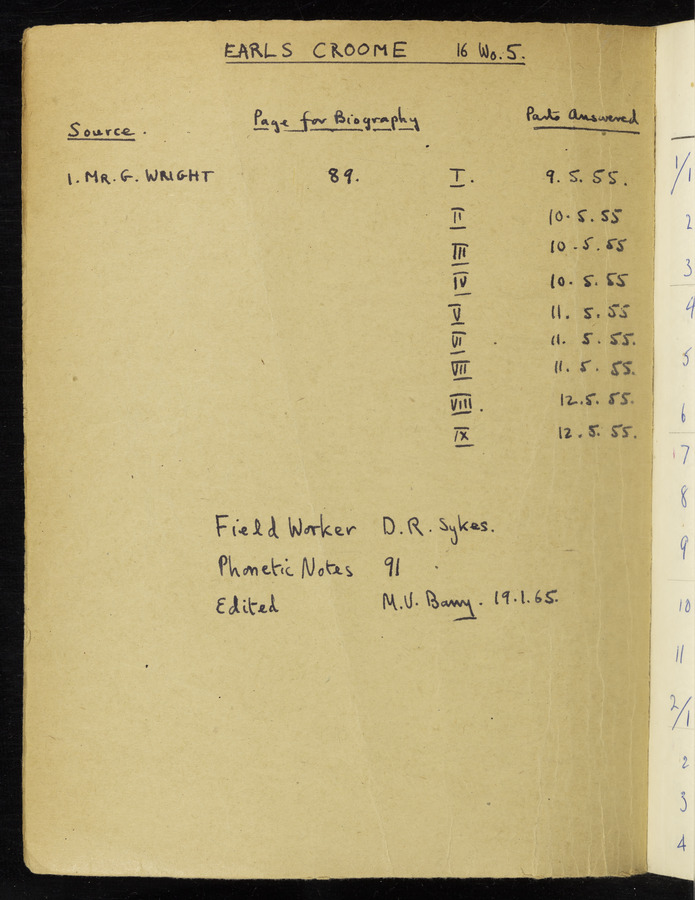 EARLS CROOME 16 Wo. 5.
Source. Page for Biography Parts Answered
1. MR. G. WRIGHT 89. I. 9. 5. 55.
II 10. 5. 55
III 10. 5. 55
IV 10. 5. 55
V 11. 5. 55
VI 11. 5. 55.
VII 11. 5. 55.
VIII. 12. 5. 55.
IX 12. 5. 55.
Field Worker D.R. Sykes.
Phonetic Notes 91
Edited M.V. Barry. 19.1.65.
1/1
2
3
4
5
6
7
8
9
10
11
2/1
2
3
4